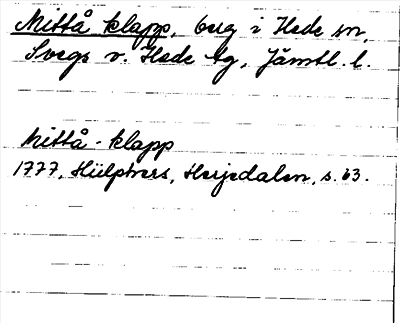 Mittå klapp, berg i Hede sn,
Svegs o. Hede tg, Jämtl. l.
Mittå-klapp
1777, Hülphers, Herjedalen, s. 63.